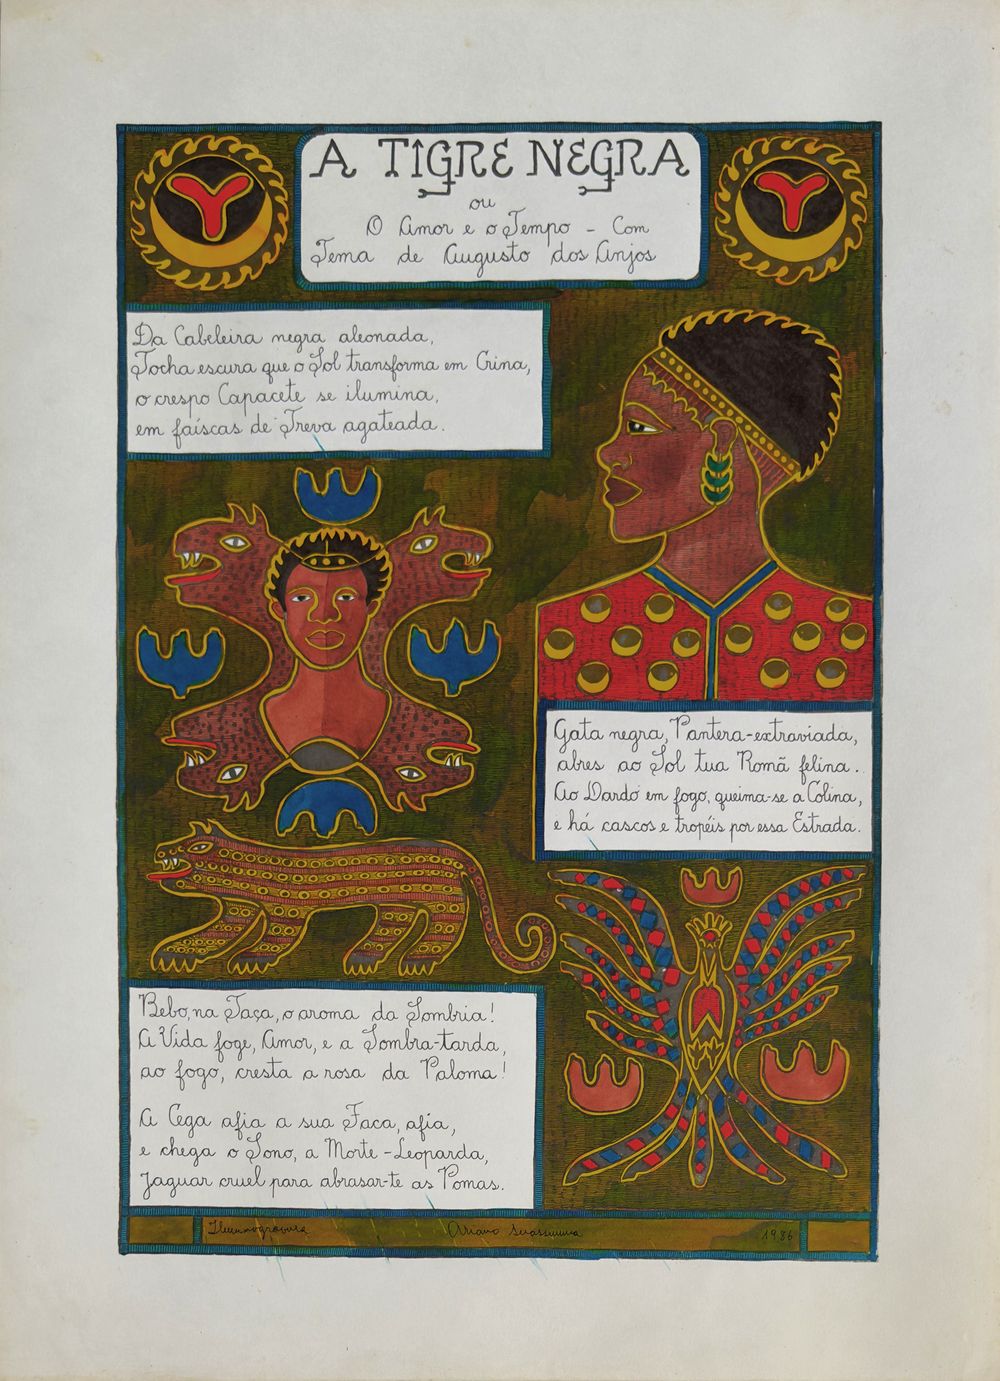 A TIGRE NEGRA
ou
O Amor e o Tempo - Com
Tema de Augusto dos Anjos
Da Cabeleira negra aleonada,
Tocha escura que o Sol transforma em Crina,
o crespo Capacete se ilumina,
em faíscas de Treva agateada.
Gata negra, Pantera-extraviada,
abres ao Sol tua Romã felina.
Ao Dardo em fogo, queima-se a Colina,
e há cascos e tropéis por essa Estrada.
Bebo, na Taça, o aroma da Sombria!
A Vida foge, Amor, e a Sombra-tarda,
ao fogo, cresta a rosa da Paloma!
A Cega afia a sua Faca, afia,
e chega o Sono, a Morte-Leoparda,
Jaguar cruel para abrasar-te as Pomas.
Iluminogravura Ariano Suassuna 1986